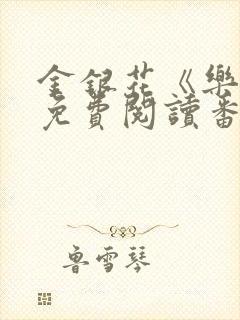 金銀花《樂
免費閱讀番
魯雪琴